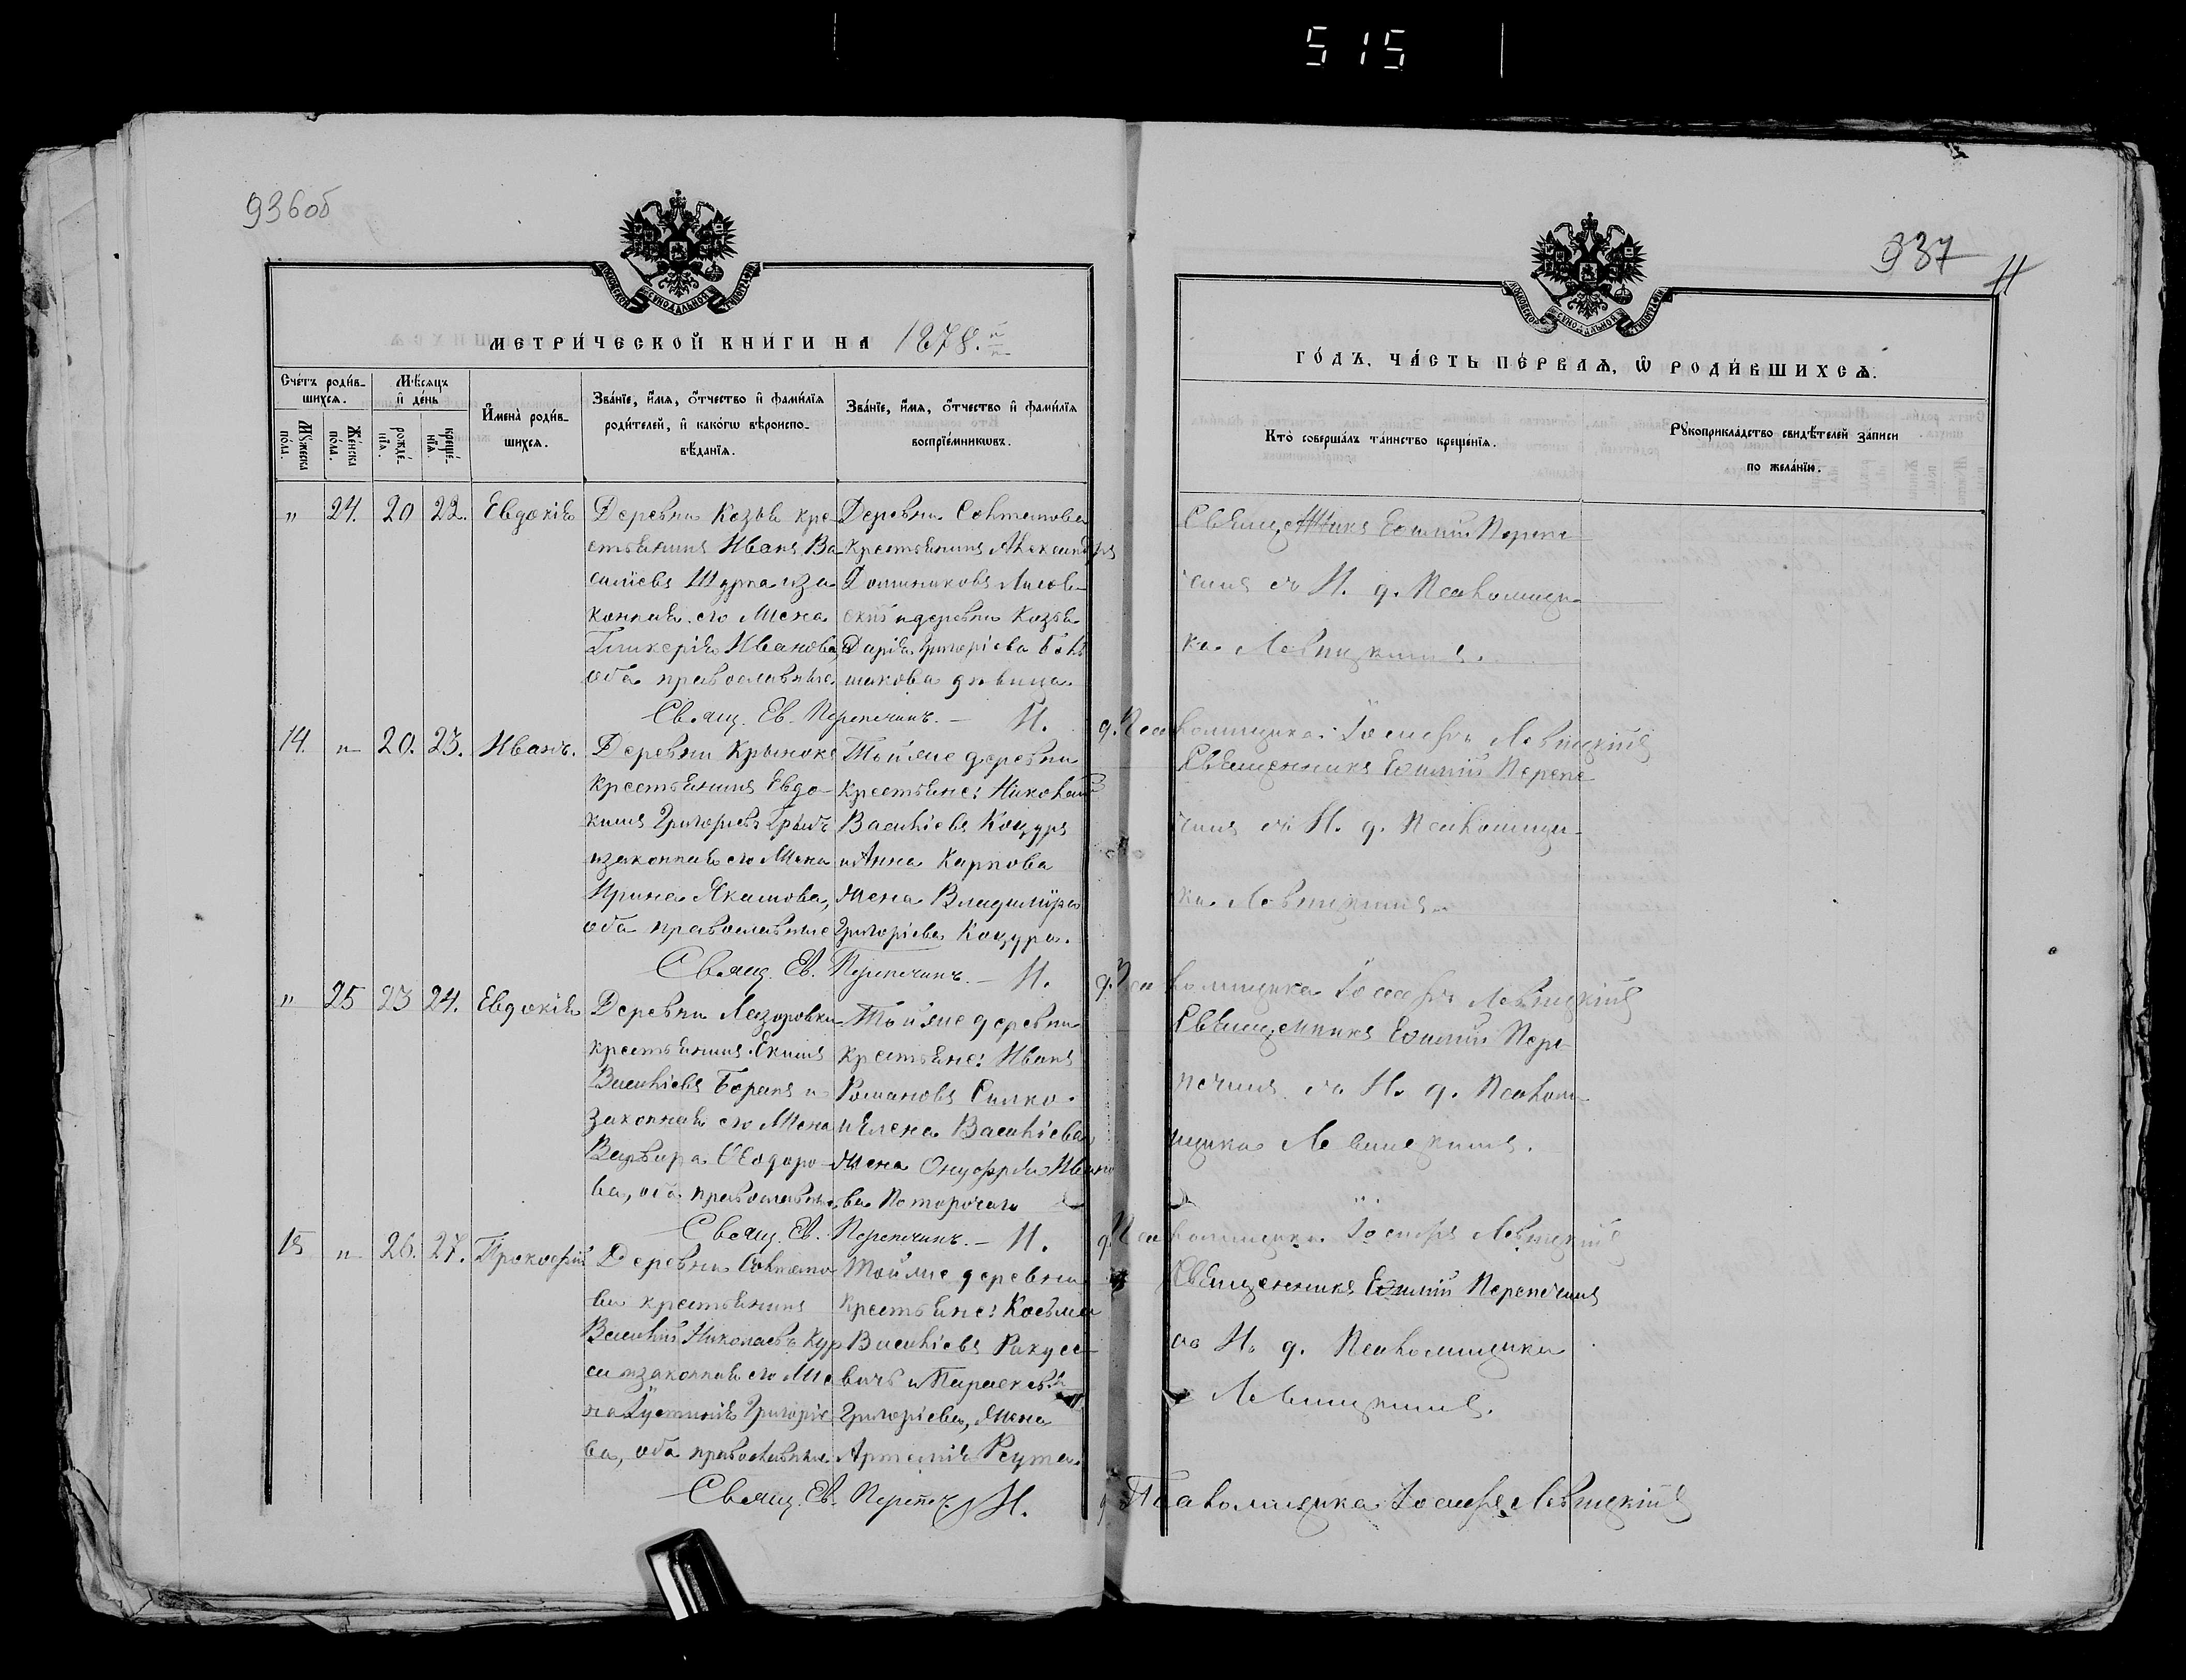 515
936об
937
11
МОСКОВСКОЙ СУНОДАЛЬНОЙ ТИПОГРАФIИ
МОСКОВСКОЙ СУНОДАЛЬНОЙ ТИПОГРАФIИ
МЕТРИ́ЧЕСКОЙ КНИ́ГИ НА 1878.й
ГО́ДЪ, ЧА́СТЬ ПЕ́РВАѦ, Ѡ҆ РОДИ́ВШИХСѦ.
Сче́тъ роди́в-
шихсѧ.
Мꙋ́жеска по́ла.
Же́нска по́ла.
Мѣ́сѧцъ
и҆ де́нь
рожде́-
нїѧ.
креще́-
нїѧ.
И҆мена̀ роди́в-
шихсѧ.
Зва́нїе, и҆́мѧ, ѻ҆́тчество и҆ фами́лїѧ
роди́телей, и҆ како́гѡ вѣроиспо-
вѣ́данїѧ.
Зва́нїе, и҆́мѧ, ѻ҆́тчество и҆ фами́лїѧ
воспрїе́мникѡвъ.
Кто̀ соверша́лъ та́инство креще́нїѧ.
Рꙋкоприкла́дство свидѣ́телей за́писи
по жела́нїю.
„ 24. 20 22. Евдокія
Деревни Козья кре-
стьянинъ Иванъ Ва-
силіевъ Шурпа и за-
конная его жена
Гликерія Иванова,
оба православные.
Деревни Солтанова
крестьянинъ Александръ
Доминиковъ Лисов-
скій и деревни Козья
Дарія Григоріева
дѣвица.
Священникъ Евѳимій Перепе-
чинъ съ И. д. Псаломщи-
ка Левицкимъ.
Свящ. Ев. Перепечинъ. — И. д. Псаломщика Іосифъ Левицкій
14. „ 20. 23. Иванъ.
Деревни Крынокъ
крестьянинъ Евдо-
кимъ Григорьевъ Грыбъ
и законная его жена
Ирина Якимова,
оба православные
Той же деревни
крестьяне: Николай
Василіевъ Коцуръ
и Анна Карпова
жена Владиміра
Григоріева Коцура.
Священникъ Евѳимій Перепе-
чинъ съ И. д. Псаломщи-
ка Левицкимъ.
Свящ. Ев. Перепечинъ. — И. д. Псаломщика Іосифъ Левицкій
„ 25 23 24. Евдокія
Деревни Лазоровки
крестьянинъ Екимъ
Василіевъ Боранъ и
законная его жена
Варвара Ѳеодоро-
ва, оба православные.
Той же деревни
крестьяне: Иванъ
Романовъ Силко
и Елена Василіева
жена Онуфрія Ивано-
ва Поторочина
Священникъ Евѳимій Пере-
печинъ съ И. д. Псалом-
щика Левицкимъ.
Свящ. Ев. Перепечинъ. — И. д. Псаломщика Іосифъ Левицкій
15 „ 26. 27. Прокофій
Деревни Солтано-
ва крестьянинъ
Василій Николаевъ Кур-
са и законная его же-
на Іустинія Григоріе-
ва, оба православные.
Той же деревни
крестьяне: Косьма
Василіевъ Ракусе-
вичъ и Параскева
Григоріева, жена
Артемія Реута.
Священникъ Евѳимій Перепечинъ
съ И. д. Псаломщика
Левицкимъ.
Свящ. Ев. Перепеч. И. д. Псаломщика Іосифъ Левицкій